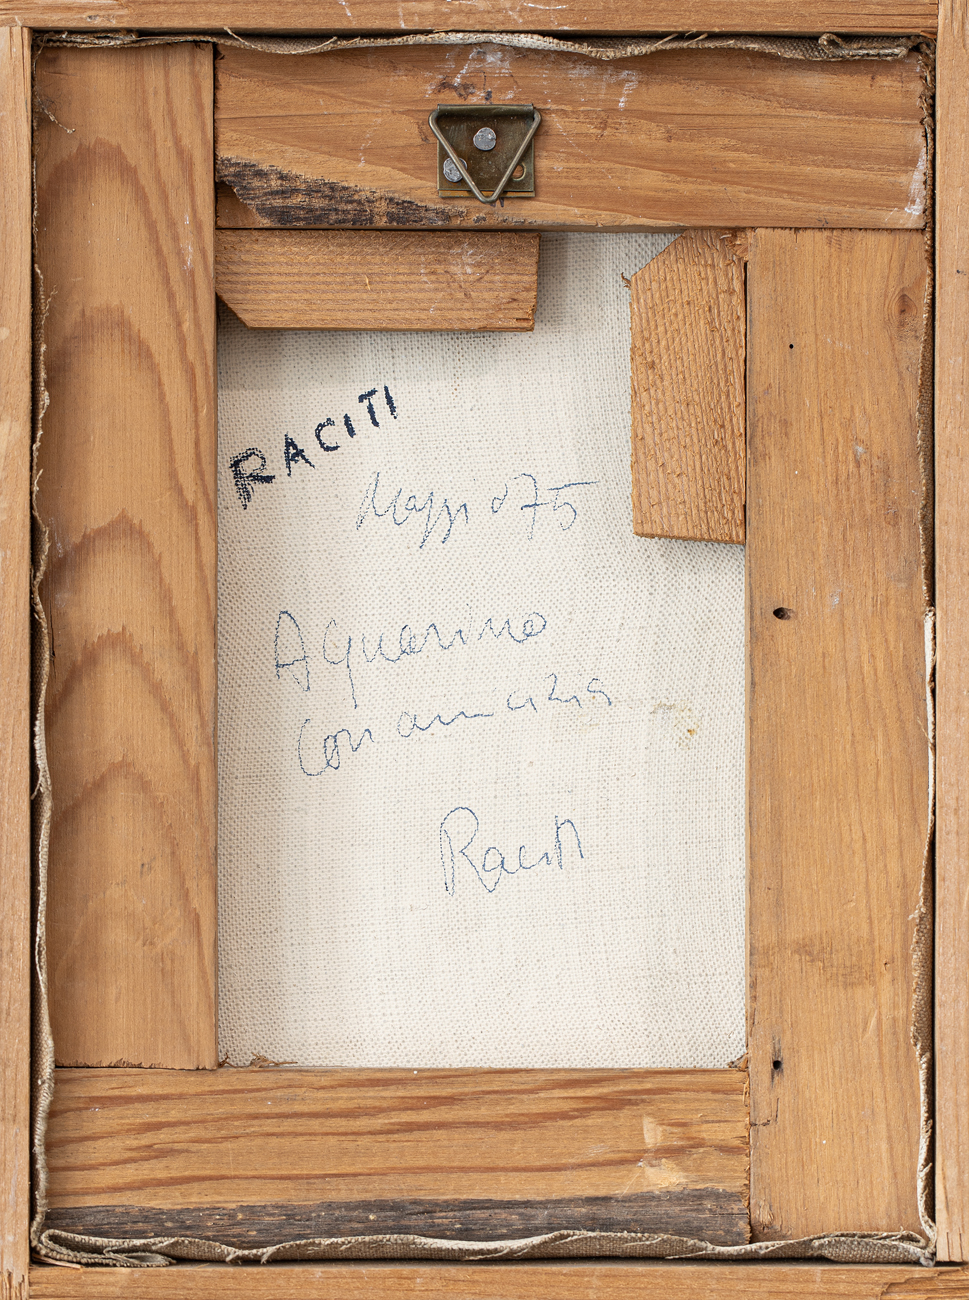 RACITI
Maggio 75
Aquarino
con amicizia
Raciti